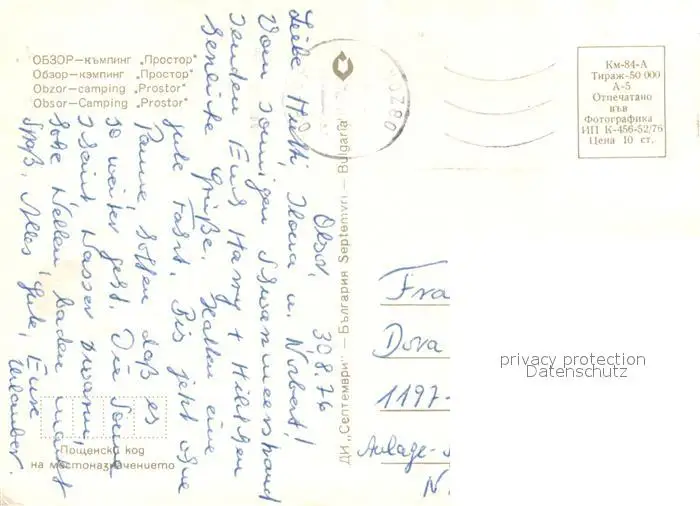 ОБЗОР—къмпинг „Простор"
Обзор—кэмпинг „Простор"
Obzor-camping „Prostor"
Obsor-Camping „Prostor"
Км-84-А
Тираж-50 000
А-5
Отпечатано
във
Фотографика
ИП К-456-52/76
Цена 10 ст.
Obsor, 30.8.76
Liebe Hietti, Ilona u. Norbert!
Vom sonnigen Schwarzmeerstrand
senden Euch Harry + Hildegen
herzliche Grüße. Hatten eine
gute Fahrt. Bis jetzt ohne
Panne, hoffen daß es
so weiter geht. Die Sonne
scheint, Wasser warm,
hohe Wellen, baden macht
Spaß. Alles Gute, Eure
Urlauber.
ДИ „Септември" — България Septemvri — Bulgaria
Пощенски код
на местоназначението
Fra
Dora
1197-
Anlage-
N.
privacy protection
Datenschutz